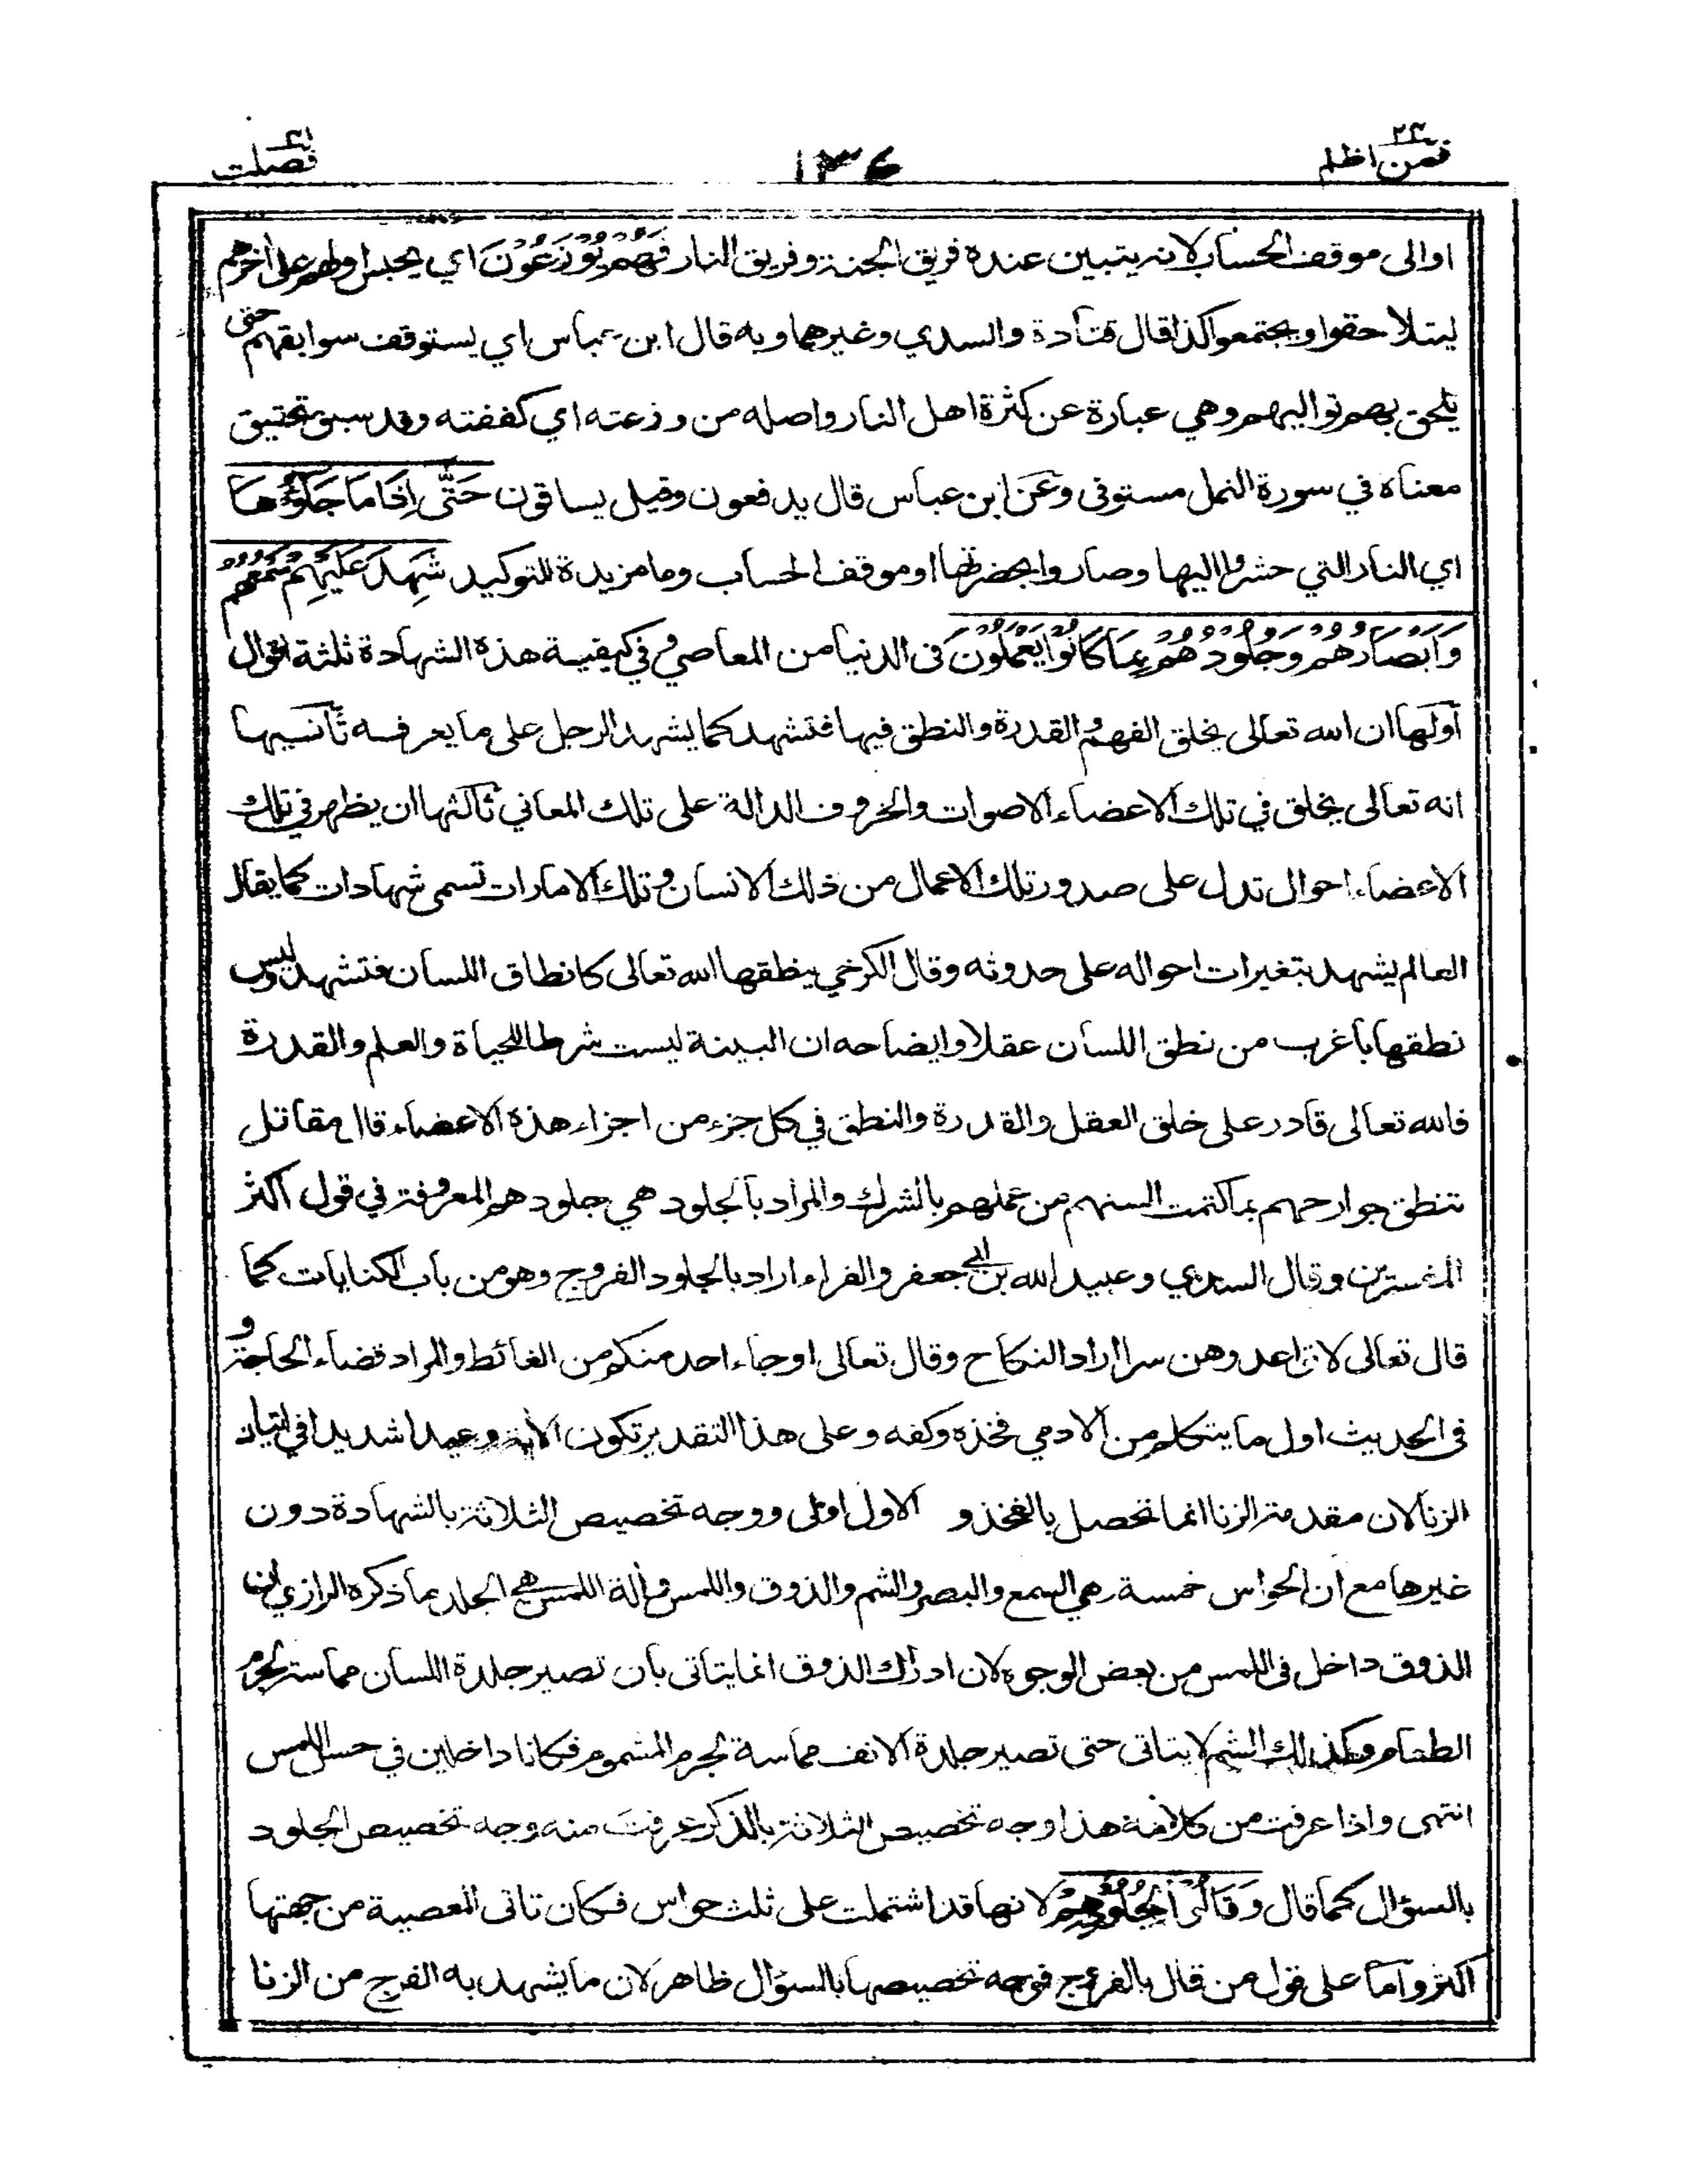 فمن اظلم ٢٤
١٣٤
فصلت ٤١
او الى موقف الحساب لانه يتبين عنده فريق الجنة وفريق النار فَهُمْ يُوْزَعُوْنَ اي يحبس اولهم على اخرهم
ليتلاحقوا ويجتمعوا كذا قال قتادة والسدي وغيرهما وبه قال ابن عباس اي يستوقف سوابقهم حتى
يلحق بهم تواليهم وهي عبارة عن كثرة اهل النار واصله من وزعته اي كففته وقد سبق تحقيق
معناه في سورة النمل مستوفى وعن ابن عباس قال يدفعون وقيل يساقون حَتّٰى اِذَا مَا جَاؤُهَا
اي النار التي حشروا اليها وصاروا بحضرتها او موقف الحساب وما مزيدة للتوكيد شَهِدَ عَلَيْهِمْ سَمْعُهُمْ
وَاَبْصَارُهُمْ وَجُلُوْدُهُمْ بِمَا كَانُوْا يَعْمَلُوْنَ فى الدنيا من المعاصي وفي كيفيية هذه الشهادة ثلثة اقوال
اولها ان الله تعالى يخلق الفهم و القدرة والنطق فيها فتشهد كما يشهد الرجل على ما يعرفه ثانيها
انه تعالى يخلق في تلك الاعضاء الاصوات والحروف الدالة على تلك المعاني ثالثها ان يظهر في تلك
الاعضاء احوال تدل على صدور تلك الاعمال من ذلك الانسان وتلك الامارات تسمى شهادات كما يقال
العالم يشهد بتغيرات احواله على حدوثه وقال الكرخي ينطقها الله تعالى كانطاق اللسان فتشهد وليس
نطقها باغرب من نطق اللسان عقلا وايضاحه ان البينة ليست شرطا للحياة والعلم والقدرة
فالله تعالى قادر على خلق العقل والقدرة والنطق في كل جزء من اجزاء هذه الاعضاء قال مقاتل
تنطق جوارحهم بما كتمت السنهم من عملهم بالشرك والمراد بالجلود هي جلودهم المعروفة في قول اكثر
المفسرين وقال السدي وعبيد الله بن ابي جعفر والفراء اراد بالجلود الفروج وهو من باب الكنايات كما
قال تعالى لا تواعدوهن سرا اراد النكاح وقال تعالى او جاء احد منكم من الغائط والمراد قضاء الحاجة و
فى الحديث اول ما يتكلم من الادمي فخذه وكفه وعلى هذا التقدير تكون الاية وعيدا شديدا في اتيان
الزنا لان مقدمة الزنا انما تحصل بالفخذ و الاول اولى ووجه تخصيص الثلاثة بالشهادة دون
غيرها مع ان الحواس خمسة وهي السمع والبصر والشم والذوق واللمس والة اللمس هي الجلد بما ذكره الرازي ان
الذوق داخل فى اللمس من بعض الوجوه لان ادراك الذوق انما يتاتى بان تصير جلدة اللسان مماسة لجرم
الطعام وكذلك الشم لا يتاتى حتى تصير جلدة الانف مماسة لجرم المشموم فكانا داخلين في حس اللمس
انتهى واذا عرفت من كلامه هذا وجه تخصيص الثلاثة بالذكر عرفت منه وجه تخصيص الجلود
بالسؤال كما قال وَقَالُوْا لِجُلُوْدِهِمْ لانها قد اشتملت على ثلث حواس فكان تاتى المعصية من جهتها
اكثر واما على قول من قال بالفروج فوجه تخصيصها بالسؤال ظاهر لان ما يشهد به الفرج من الزنا